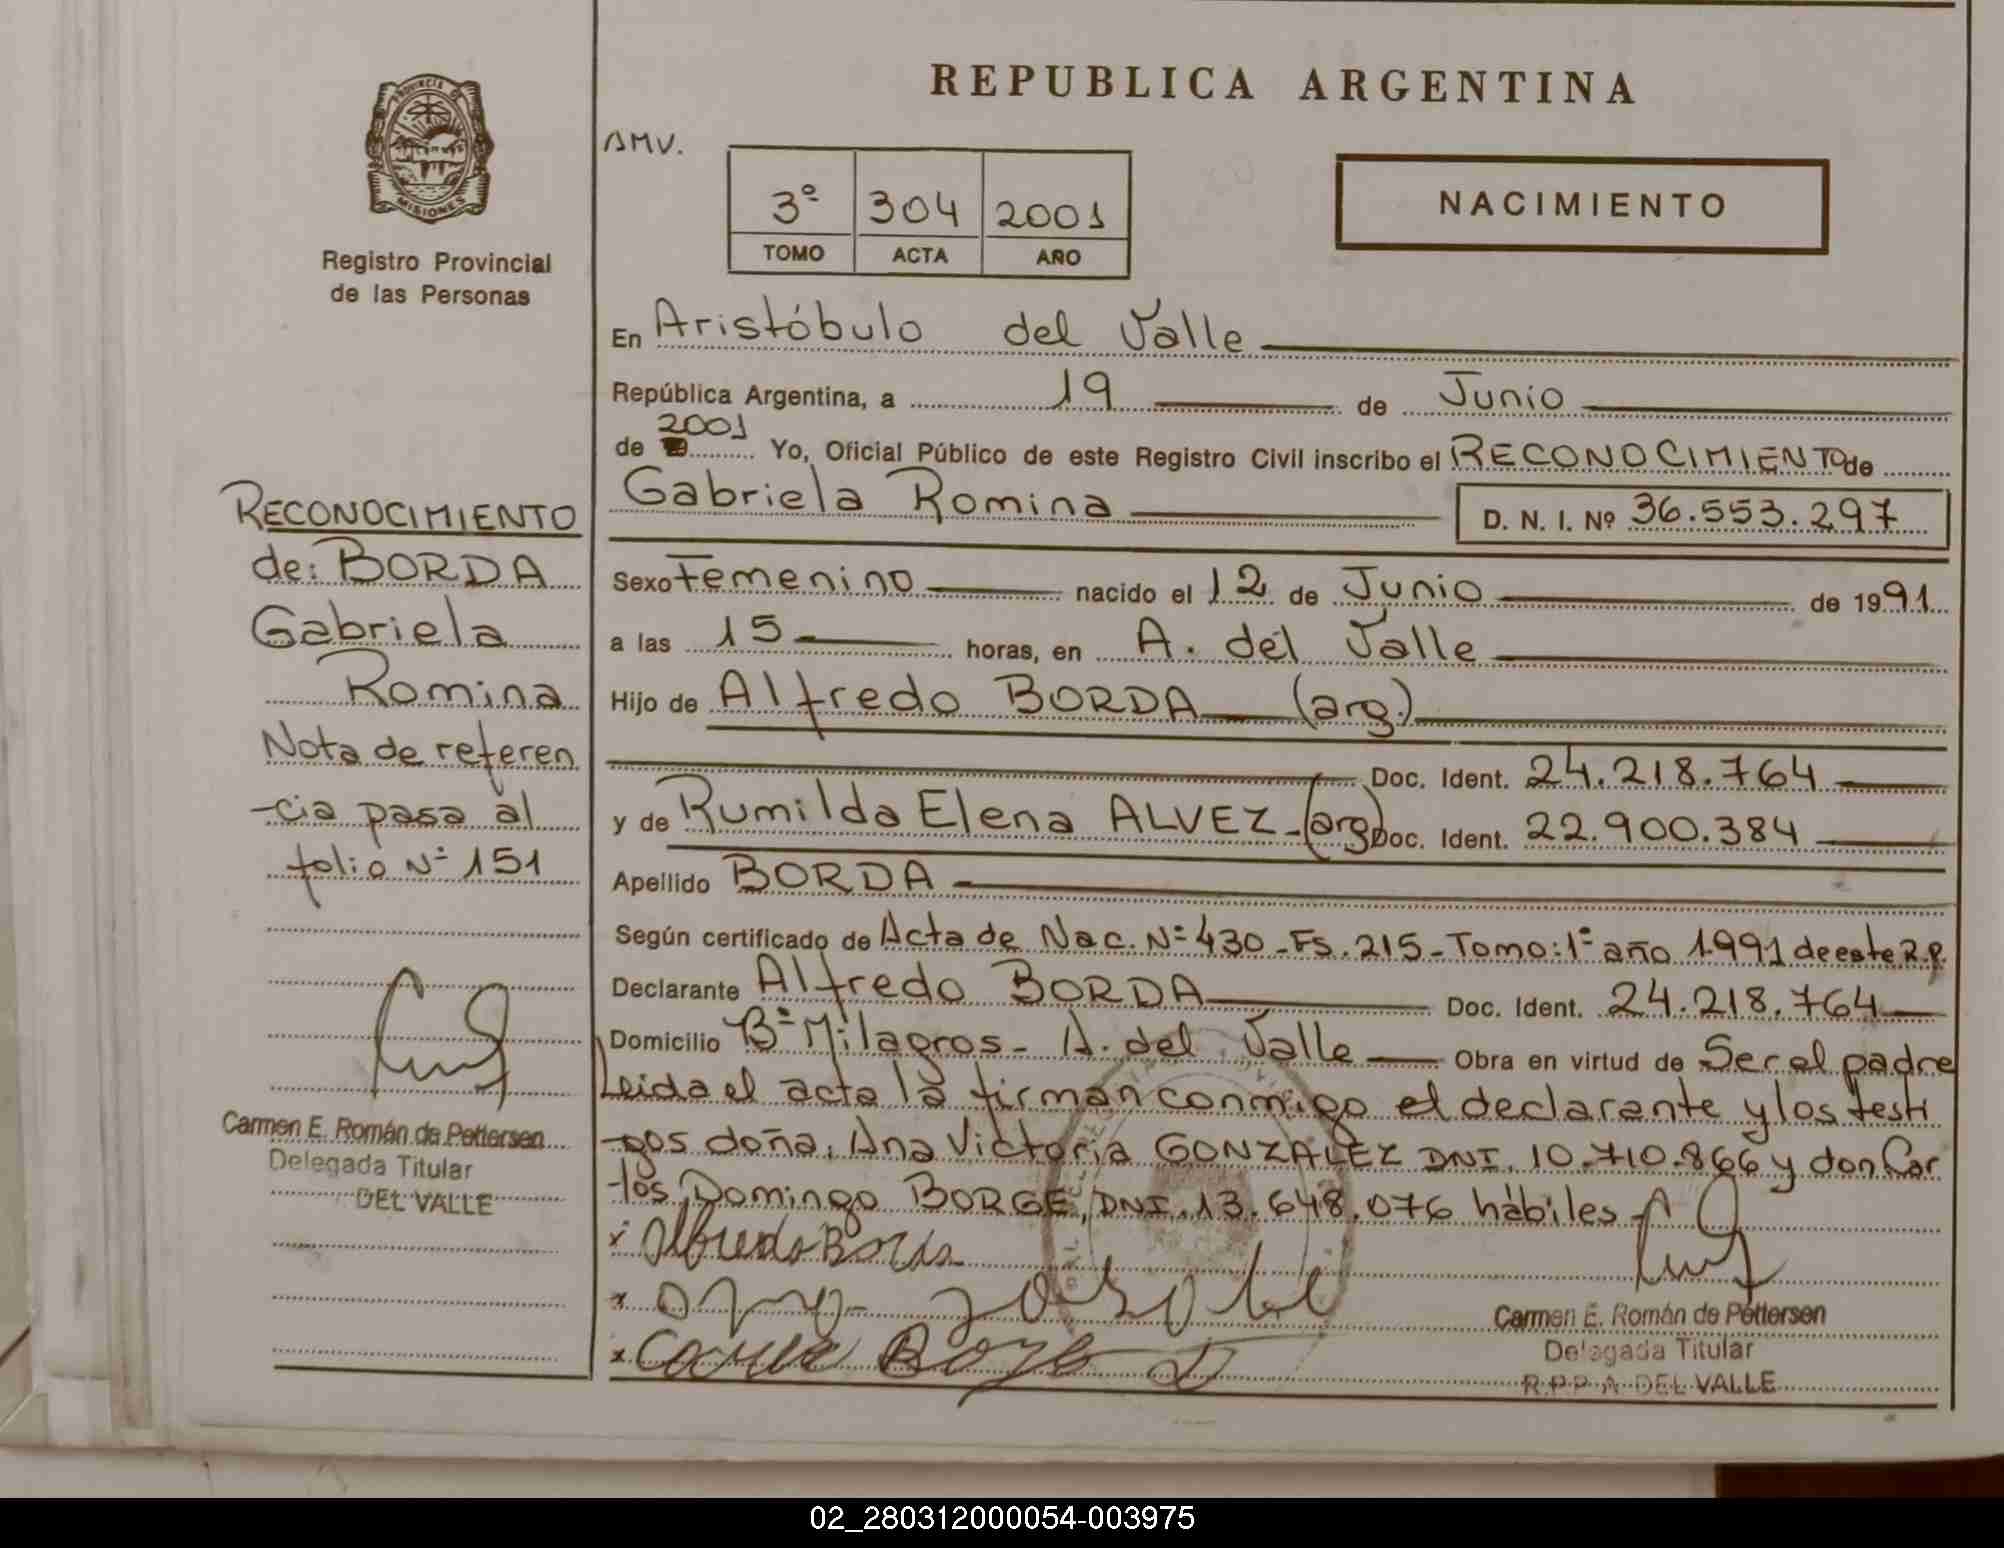 REPUBLICA ARGENTINA
PROVINCIA D
MISIONES
Registro Provincial
de las Personas
AMV.
3º 304 2001
TOMO ACTA AÑO
NACIMIENTO
En Aristóbulo del Valle
República Argentina, a 19 de Junio
de 2001 Yo, Oficial Público de este Registro Civil inscribo el RECONOCIMIENTO de
Gabriela Romina D. N. I. Nº 36.553.297
Sexo Femenino nacido el 12 de Junio de 1991
a las 15 horas, en A. del Valle
Hijo de Alfredo BORDA (arg.)
Doc. Ident. 24.218.764
y de Rumilda Elena ALVEZ - (arg) Doc. Ident. 22.900.384
Apellido BORDA
Según certificado de Acta de Nac. Nº 430 - Fs. 215 - Tomo: 1º año 1991 de este R.P.
Declarante Alfredo BORDA Doc. Ident. 24.218.764
Domicilio Bº Milagros - A. del Valle Obra en virtud de Ser el padre
Leida el acta la firman conmigo el declarante y los testi
-gos doña: Ana Victoria GONZALEZ DNI. 10.710.866 y don Car
-los Domingo BORGE, DNI. 13.648.076 hábiles
x Alfredo Borda
x
x
Carmen E. Román de Pettersen
Delegada Titular
R.P.P. A. DEL VALLE
RECONOCIMIENTO
de: BORDA
Gabriela
Romina
Nota de referen
-cia pasa al
folio Nº 151
Carmen E. Román de Pettersen
Delegada Titular
DEL VALLE
02_280312000054-003975